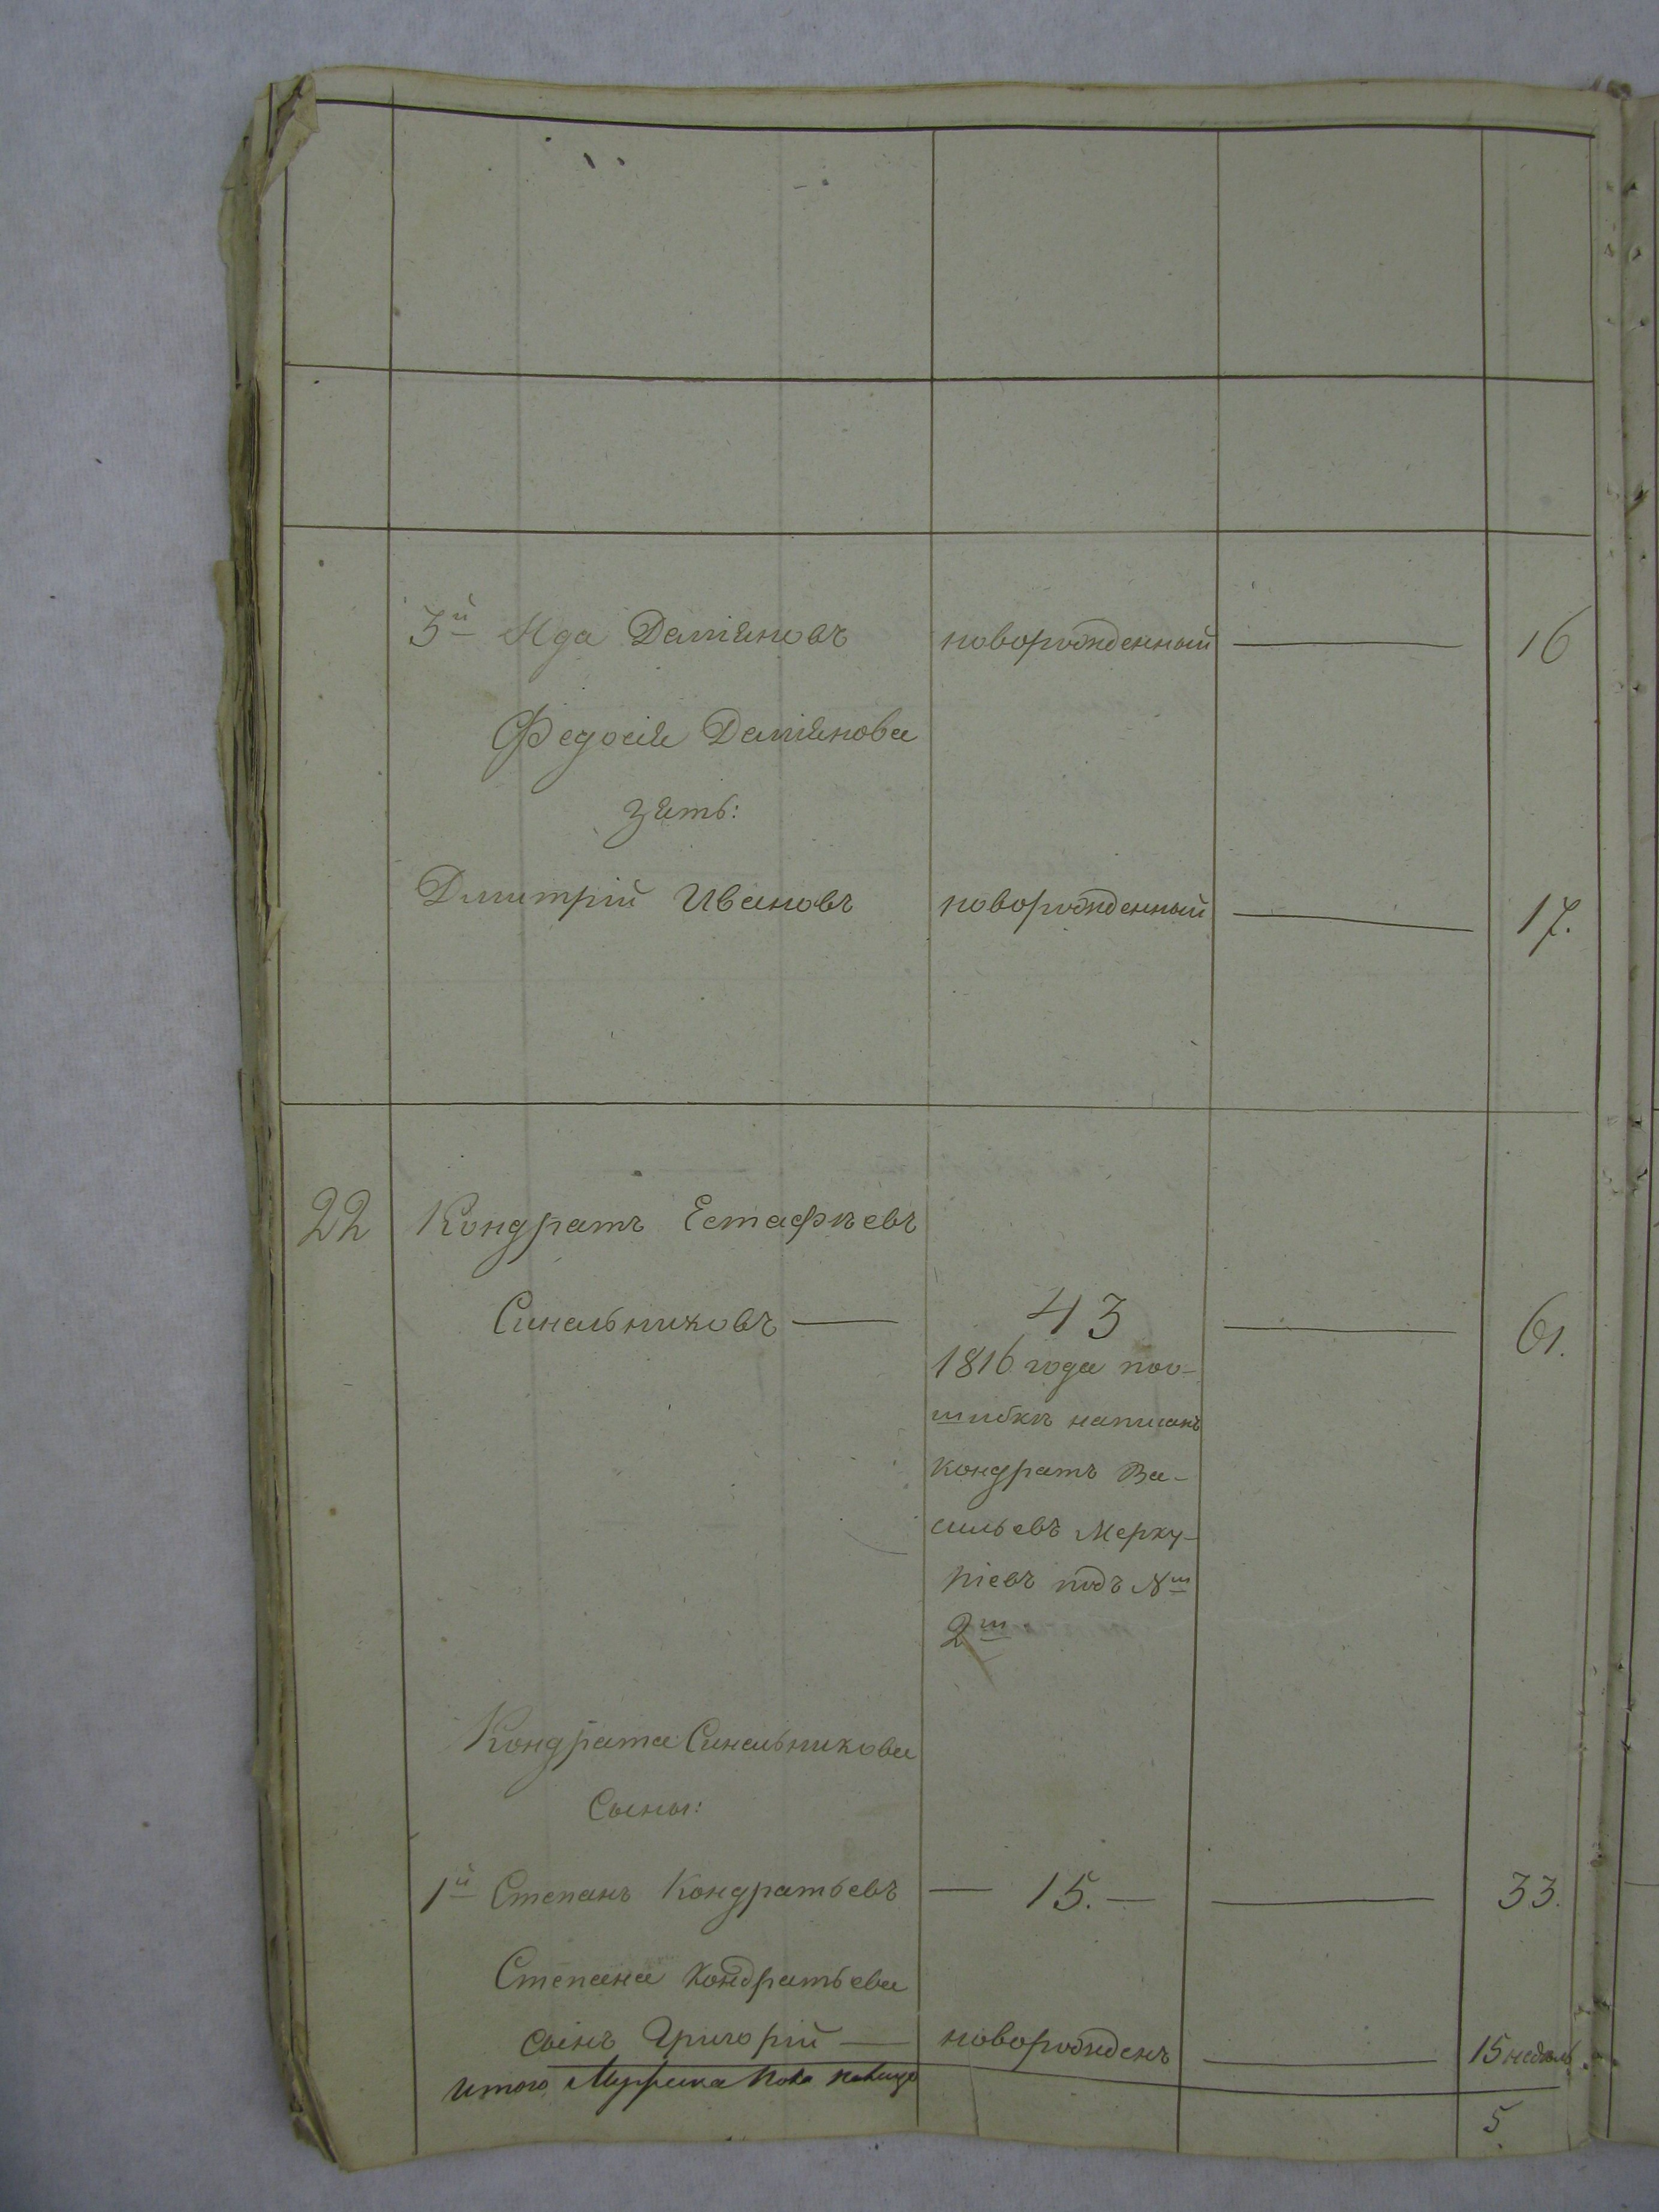 3й Яда Даміановъ новорожденный — 16
Федосіи Даміанова
зять:
Дмитрій Ивановъ новорожденный — 17.
22 Кондратъ Естафѣевъ
Синельниковъ — 43 — 61.
1816 года поо-
шибкѣ написанъ
Кондратъ Ва-
сильевъ Мерку-
ріевъ подъ №м
2м.
Кондрата Синельникова
Сыны:
1й Степанъ Кондратьевъ — 15. — — 33.
Степана Кондратьева
сынъ Григорій — новорожденъ — 15 недель
Итого Мужеска пола налицо
5